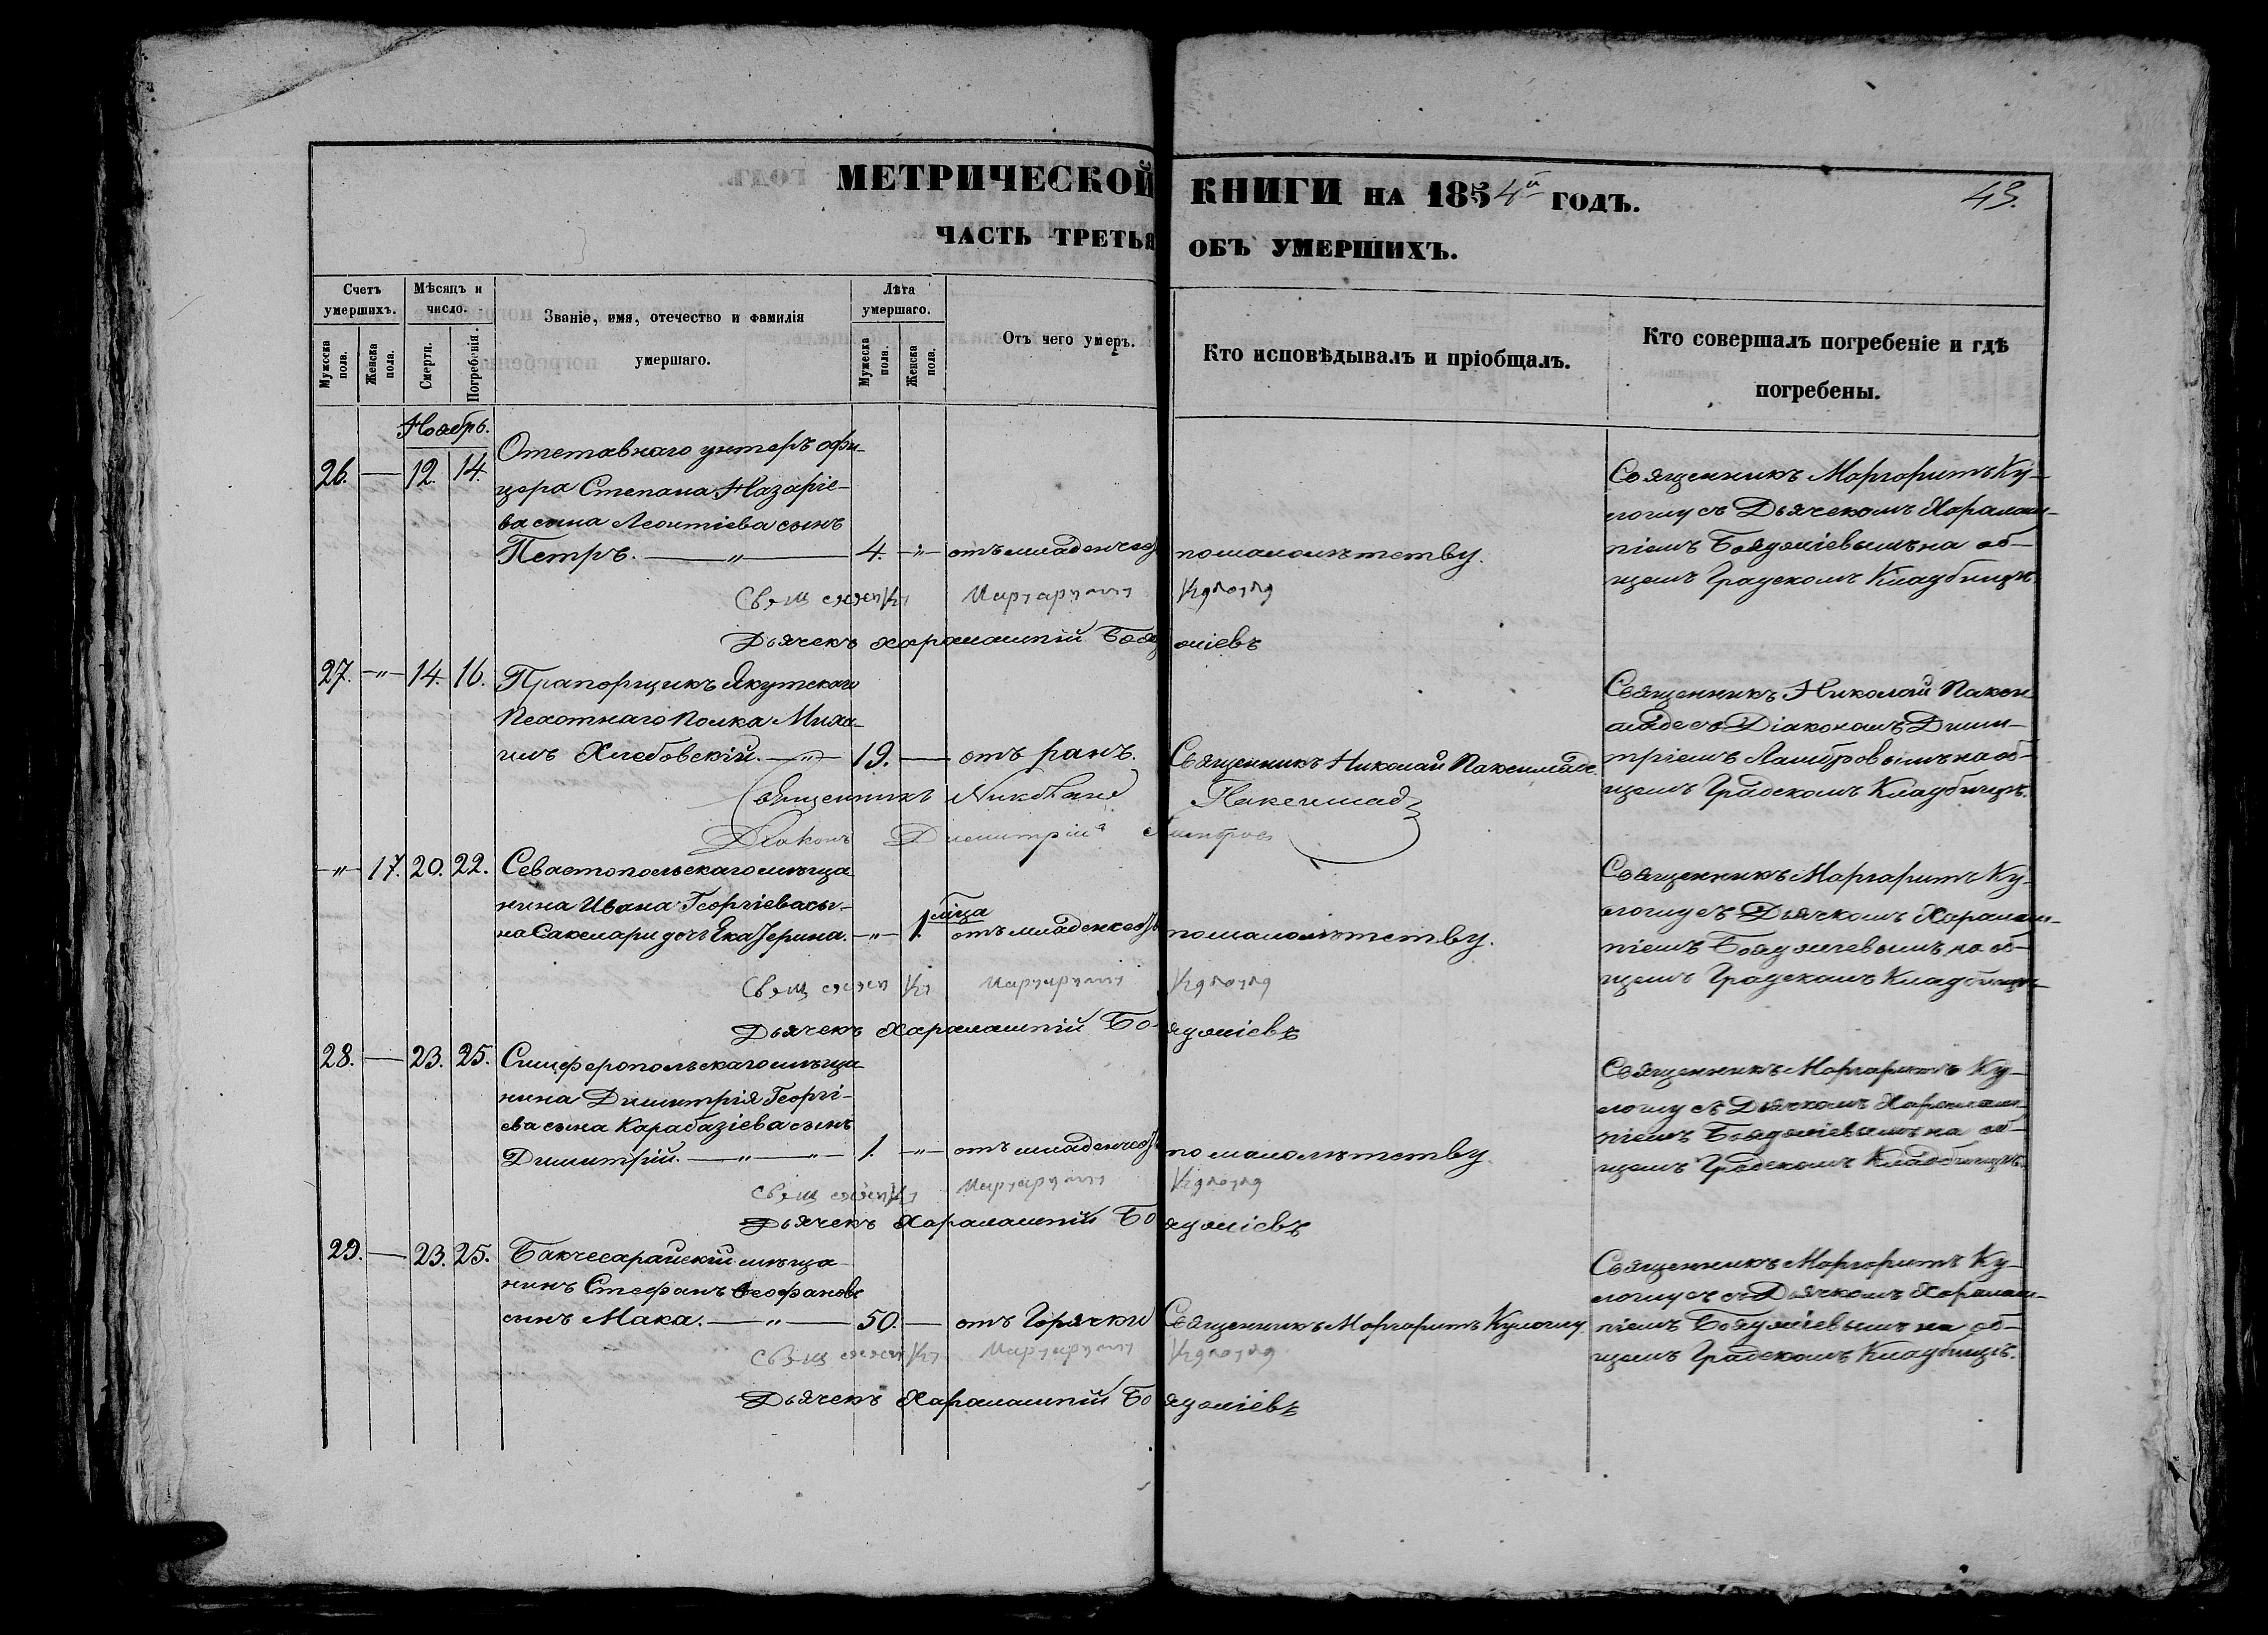 МЕТРИЧЕСКОЙ КНИГИ НА 1854й ГОДЪ.
43.
ЧАСТЬ ТРЕТЬЯ ОБЪ УМЕРШИХЪ.
Счетъ умершихъ.
Мужеска пола.
Женска пола.
Мѣсяцъ и число.
Смерти.
Погребенія.
Званіе, имя, отечество и фамилія
умершаго.
Лѣта умершаго.
Мужеска пола.
Женска пола.
Отъ чего умеръ.
Кто исповѣдывалъ и пріобщалъ.
Кто совершалъ погребеніе и гдѣ
погребены.
Ноябрь.
26. — 12. 14.
Отставнаго унтеръ офи-
цера Степана Назаріе-
ва сына Леонтіева сынъ
Петръ. — " — 4. — " — отъ младенчес по малолѣтству.
Священникъ Маргаритъ Ку-
логлу съ Дьячекомъ Харалам-
піемъ Бояджіевымъ на об-
щемъ Градскомъ Кладбищѣ.
Священникъ Маргаритъ Кулоглу
Дьячекъ Харалампій Бояджіевъ
27. — " — 14. 16.
Прапорщикъ Якутскаго
Пехотнаго Полка Миха-
илъ Хлебовскій. — " — 19. — отъ ранъ. Священникъ Николай Паксимаде.
Священникъ Николай Пакси-
маде съ Діакономъ Дими-
тріемъ Ламбровымъ на об-
щемъ Градскомъ Кладбищѣ.
Священникъ Николай Паксимад
Діаконъ Димитрій
— " — 17. 20. 22.
Севастопольскаго мѣща-
нина Ивана Георгіева сы-
на Сакелари дочь Екатерина. — " — 1. мѣца отъ младенчес по малолѣтству.
Священникъ Маргаритъ Ку-
логлу съ Дьячкомъ Харалам-
піемъ Бояджіевымъ на об-
щемъ Градскомъ Кладбищѣ
Священникъ Маргаритъ Кулоглу
Дьячекъ Харалампій Бояджіевъ
28. — 23. 25.
Симферопольскаго мѣща-
нина Димитрія Георгі-
ева сына Карабазіева сынъ
Димитрій. — " — " — 1. — " — отъ младенчес по малолѣтству.
Священникъ Маргаритъ Ку-
логлу съ Дьячкомъ Харалам-
піемъ Бояджіевымъ на об-
щемъ Градскомъ Кладбищѣ.
Священникъ Маргаритъ Кулоглу
Дьячекъ Харалампій Бояджіевъ
29. — 23. 25.
Бакчесарайскій мѣща-
нинъ Стефанъ Феофановъ
сынъ Мака. — " — 50. — отъ Горячки Священникъ Маргаритъ Кулоглу.
Священникъ Маргаритъ Ку-
логлу съ Дьячкомъ Харалам-
піемъ Бояджіевымъ на об-
щемъ Градскомъ Кладбищѣ.
Священникъ Маргаритъ Кулоглу
Дьячекъ Харалампій Бояджіевъ